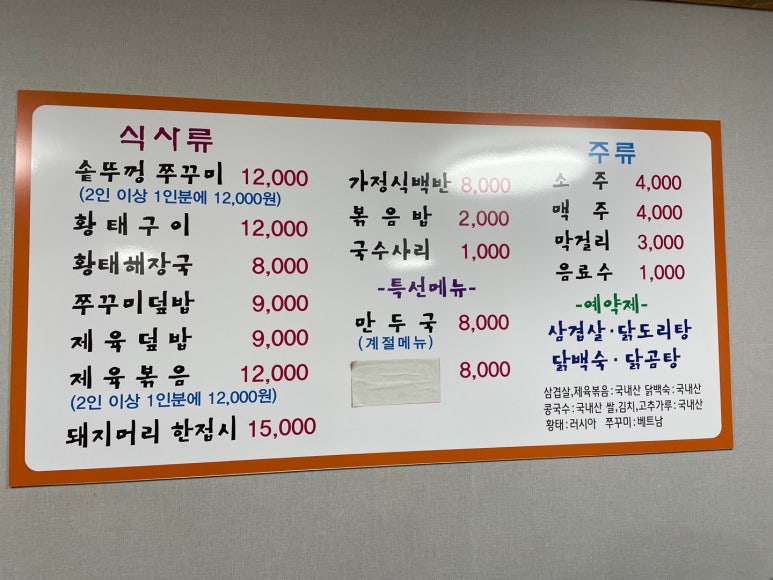 식사류
솥뚜껑 쭈꾸미 12,000
(2인 이상 1인분에 12,000원)
황태구이 12,000
황태해장국 8,000
쭈꾸미덮밥 9,000
제육덮밥 9,000
제육볶음 12,000
(2인 이상 1인분에 12,000원)
돼지머리 한접시 15,000
가정식백반 8,000
볶음밥 2,000
국수사리 1,000
-특선메뉴-
만두국 8,000
(계절메뉴)
8,000
주류
소주 4,000
맥주 4,000
막걸리 3,000
음료수 1,000
-예약제-
삼겹살·닭도리탕
닭백숙·닭곰탕
삼겹살,제육볶음:국내산 닭백숙:국내산
콩국수:국내산 쌀,김치,고추가루:국내산
황태:러시아 쭈꾸미:베트남